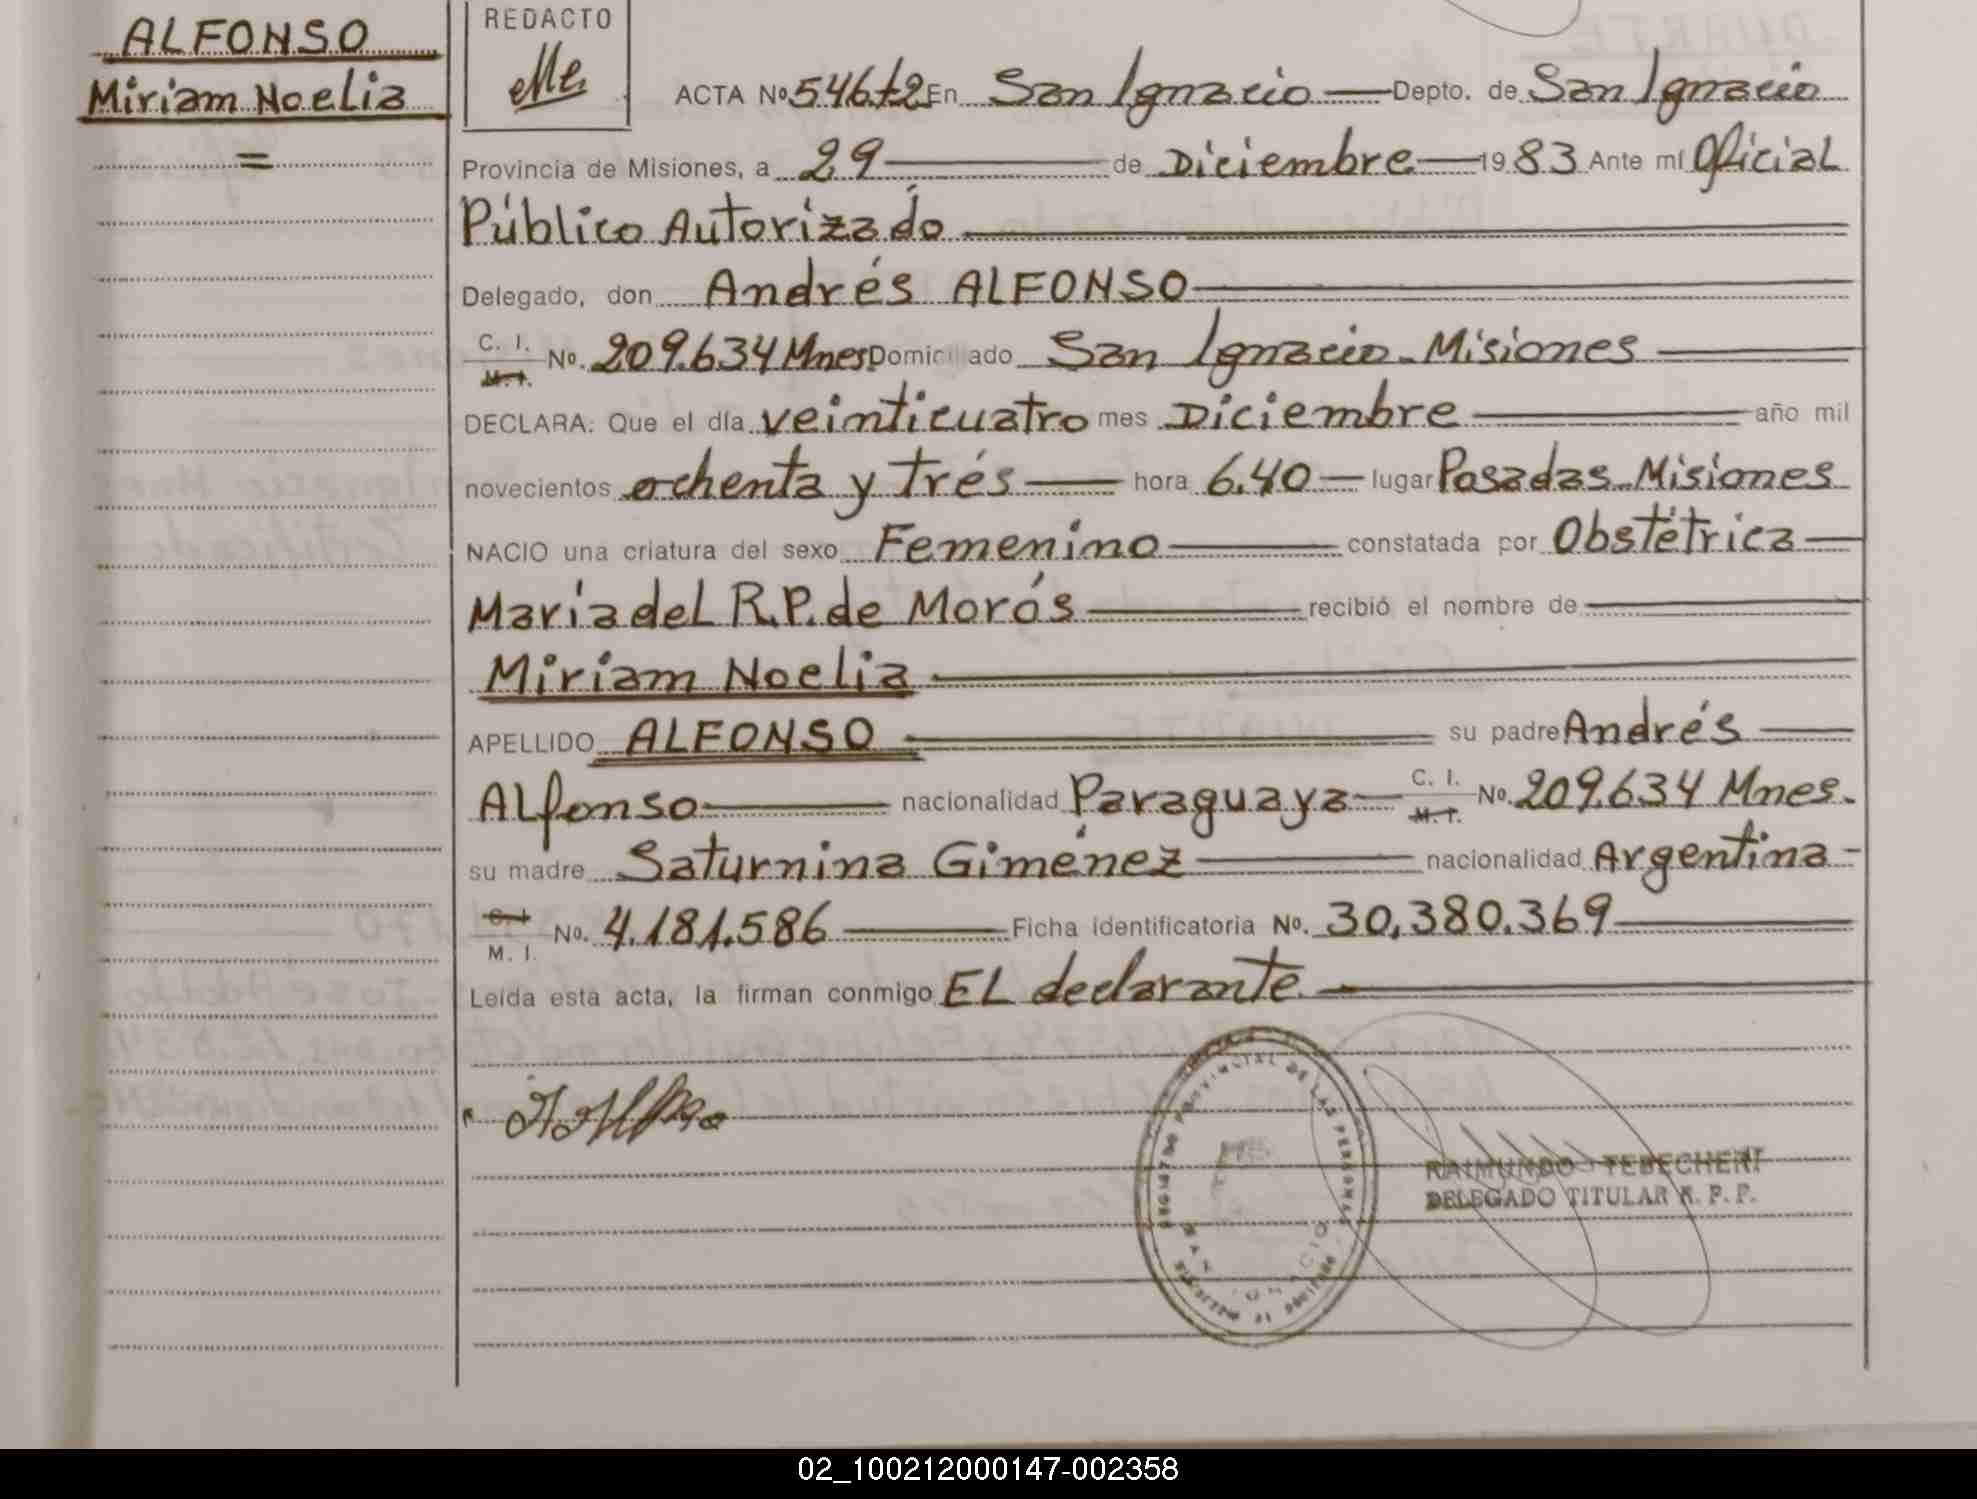 ALFONSO
Miriam Noelia
=
REDACTO
ACTA Nº 546 t2 En San Ignacio — Depto. de San Ignacio
Provincia de Misiones, a 29 — de Diciembre — 1983 Ante mí Oficial
Público Autorizado
Delegado, don Andrés ALFONSO
C. I. M. I. Nº. 209.634 Mnes Domiciliado San Ignacio - Misiones
DECLARA: Que el día veinticuatro mes Diciembre — año mil
novecientos ochenta y trés — hora 6.40 — lugar Posadas - Misiones
NACIO una criatura del sexo Femenino — constatada por Obstétrica
María del R.P. de Morás — recibió el nombre de
Miriam Noelia
APELLIDO ALFONSO — su padre Andrés
Alfonso — nacionalidad Paraguaya — C. I. M. I. Nº. 209.634 Mnes.
su madre Saturnina Giménez — nacionalidad Argentina
C. I. M. I. Nº. 4.181.586 — Ficha identificatoria Nº. 30,380.369
Leída esta acta, la firman conmigo EL declarante.
REGISTRO PROVINCIAL DE LAS PERSONAS
SAN IGNACIO
RAIMUNDO TEBECHERI
DELEGADO TITULAR R. P. P.
02_100212000147-002358